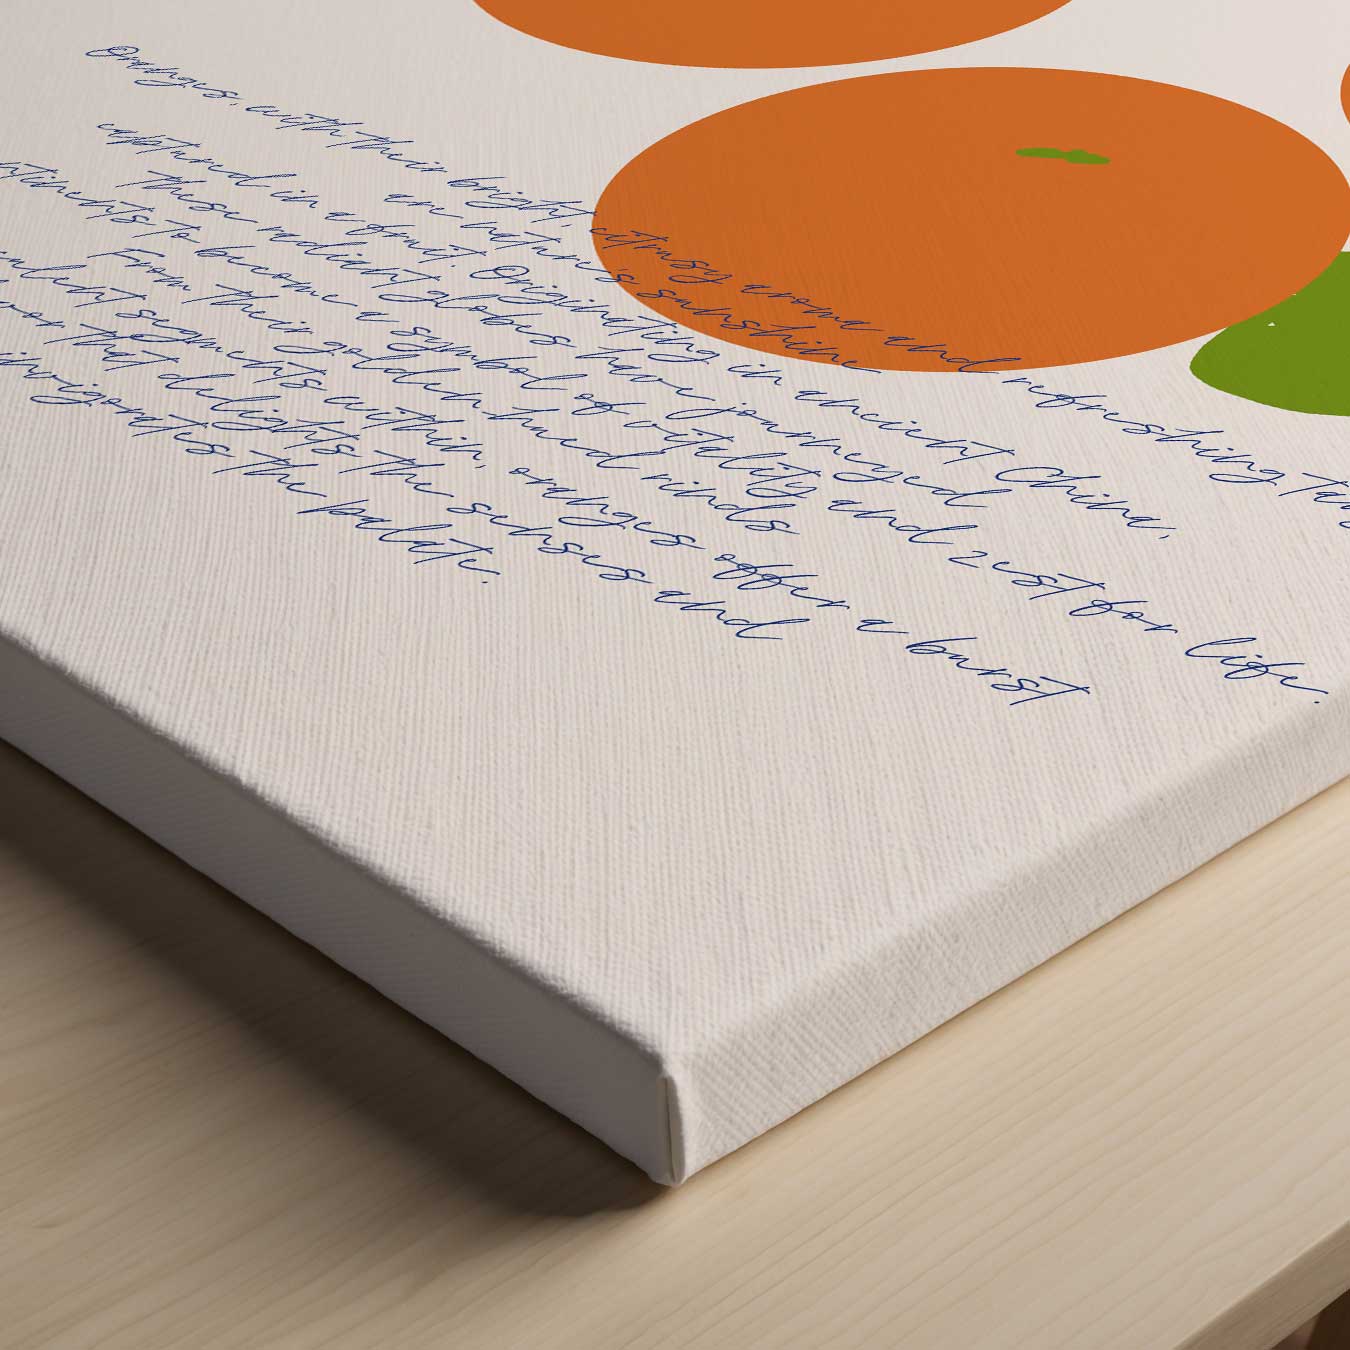 Oranges, with their bright, citrusy aroma and refreshing tan
are nature's sunshine
captured in a fruit. Originating in ancient China,
These radiant globes have journeyed
ntinents to become a symbol of vitality and zest for life.
From their golden-hued rinds
culent segments within, oranges offer a burst
vor that delights the senses and
invigorates the palate.